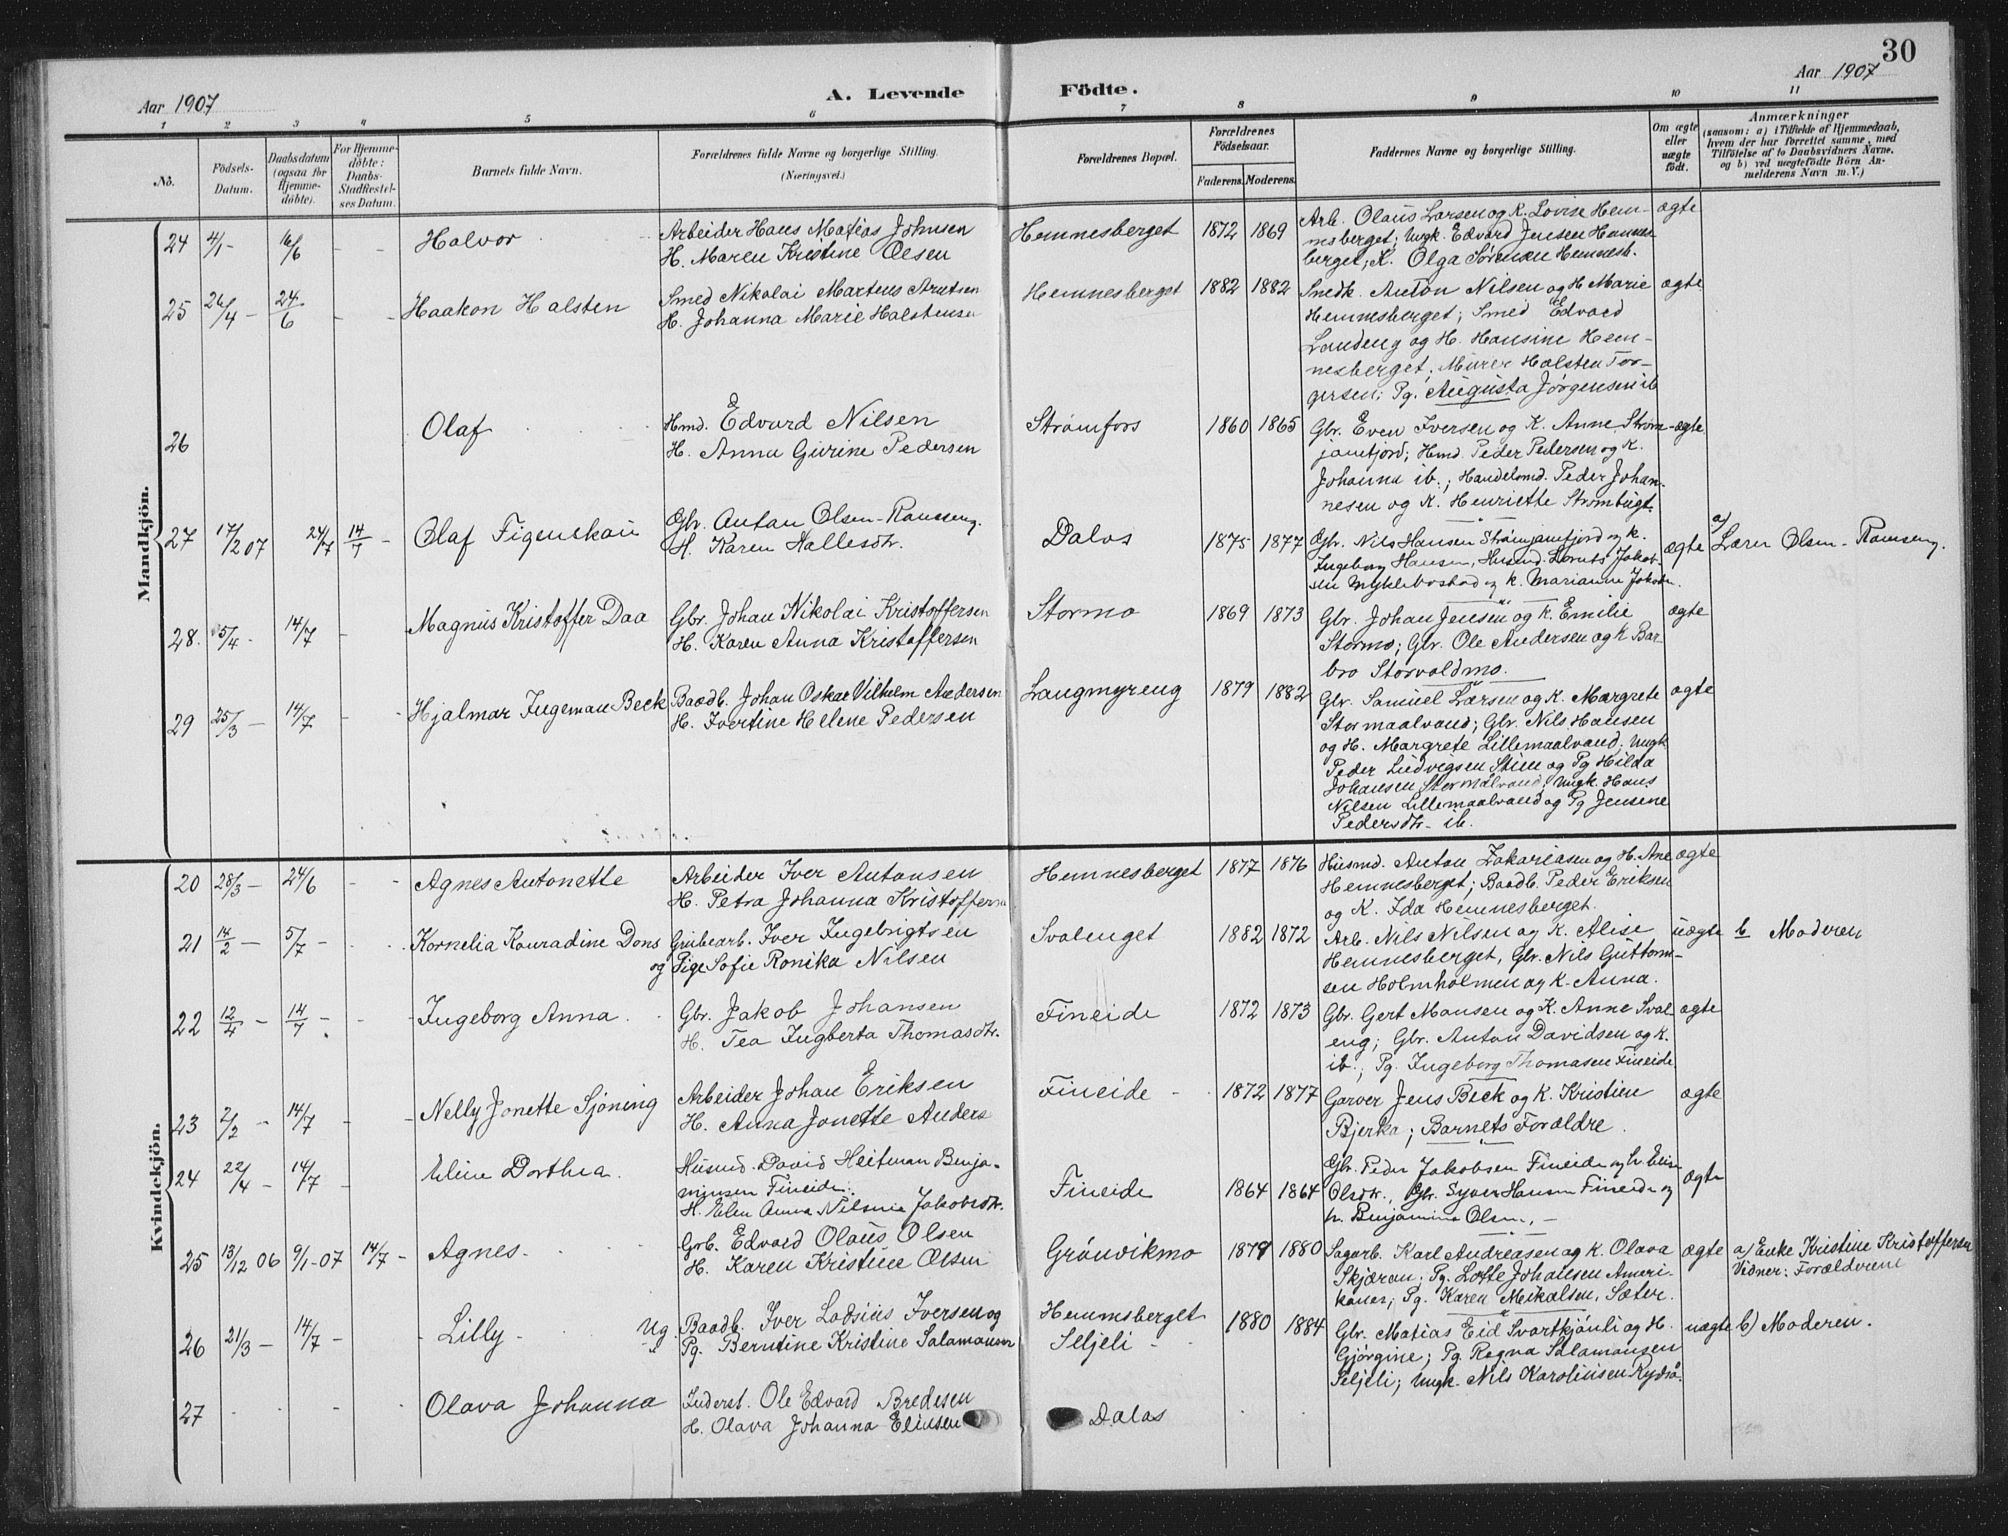 30
Aar 1907
A. Levende
Födte.
Aar 1907
1 2 3 4 5 6 7 8 9 10 11
No.
Födsels-
Datum.
Daabsdatum
(ogsaa for
Hjemme-
döbte).
For Hjemme-
döbte:
Daabs-
Stadfæstel-
ses Datum.
Barnets fulde Navn.
Forældrenes fulde Navne og borgerlige Stilling.
(Næringsvei.)
Forældrenes Bopæl.
Forældrenes
Födselsaar.
Faderens. Moderens.
Faddernes Navne og borgerlige Stilling.
Om ægte
eller
uægte
födt.
Anmærkninger
(saasom: a) i Tilfælde af Hjemmedaab,
hvem der har forrettet samme, med
Tilföielse af to Daabsvidners Navne.
og b) ved uægtefödte Börn An-
melderens Navn m. V.)
Mandkjön.
24 4/1 - 16/6 - - Halvor
Arbeider Hans Matias Johnsen
H. Maren Kristine Olsen
Hemnesberget 1872 1869
Arb. Olaus Larsen og K. Lovise Hem-
nesberget; Ungk. Edvard Jensen Hemnes-
berget; K. Olga Sørensen Hemnesb.
ægte
25 26/4 - 24/6 - - Haakon Halsten
Smed Nikolai Martens Arntsen
H. Johanna Marie Halstensen
Hemnesberget 1882 1882
Snedk. Anton Nilsen og H Marie
Hemnesberget; Smed Edvard
Landeng og H. Hansine Hem-
nesberget; Murer Halsten Tor-
gersen; Pg. Augusta Jørgensen ib
ægte
26 Olaf
Hmd. Edvard Nilsen
H. Anna Gurine Pedersen
Strømfors 1860 1865
Gbr. Even Iversen og K. Anne Strøm-
janfjord; Hmd. Peder Pedersen og K.
Johanna ib.; Handelsmd. Peder Johan-
nesen og K. Henriette Strømbugt.
ægte
27 17/12 07 24/7 14/7 - Olaf Figenskau
Gbr. Antan Olsen-Ramseng.
H. Karen Hallesdtr.
Dalos 1875 1877
Gbr. Nils Hansen Strømjanfjord og k.
Ingeborg Hansen, Husmd. Lornts Jakob-
sen Myklebostad og k. Marianne Jakobsn.
ægte a) Lærer Olsen - Ramseng.
28. 5/4 - 14/7 - Magnus Kristoffer Daa
Gbr. Johan Nikolai Kristoffersen
H. Karen Anna Kristoffersen
Stormo 1869 1873
Gbr. Johan Jensen og K. Emilie
Stormo; Gbr. Ole Andersen og K Bar-
bro Storvoldmo.
ægte
29 25/3 - 14/7 - - Hjalmar Ingeman Beck
Baadb. Johan Oskar Vilhelm Andersen
H. Ivertine Helene Pedersen
Langmyreng 1879 1882
Gbr. Samuel Larsen og K. Margrete
Stormaalvand; Gbr. Nils Hansen
og H. Margrete Lillemaalvand; Ungk
Peder Ludvigsen Stien og Pg Hilda
Johansen Stormålvand; Ungk. Hans
Nilsen Lillemaalvand og Pg Jensene
Pedersdtr. ib.
ægte
Kvindekjön.
20 28/3 - 24/6 - - Agnes Antonette
Arbeider Iver Antonsen
H. Petra Johanna Kristoffersn
Hemnesberget 1877 1876
Husmd. Anton Zakariasen og H. Ane
Hemnesberget; Baadb. Peder Eriksen
og K. Ida Hemnesberget.
ægte
21 14/2 - 5/7 - - - Kornelia Konradine Dons
Grubearb. Iver Ingebrigtsen
og Pige Sofie Ronika Nilsen
Svalenget 1882 1872
Arb. Nils Nilsen og K. Alise
Hemnesberget, Gbr. Nils Guttorm-
sen Holmholmen og K. Anna.
uægte b Moderen
22 12/4 - 14/7 - - - Ingeborg Anna.
Gbr. Jakob Johansen
H. Tea Ingberta Thomasdtr.
Fineide 1872 1873
Gbr. Gert Monsen og K. Anne Sval-
eng; Gbr. Anton Davidsen og K.
ib.; Pg. Ingeborg Thomasen Fineide
ægte
23 2/2 - 14/7 - - Nelly Jonette Sjöning
Arbeider Johan Eriksen
H. Anna Jonette Anders
Fineide - 1872 1877
Garver Jens Beck og K. Kristien
Bjerka; Barnets Forældre.
ægte
24 22/4 - 14/7 - Eline Dorthea.
Husmd. David Heitman Benja-
minsen Fineide.
H. Elen Anna Nilsine Jakobsdtr.
Fineide 1864 1864
Gbr. Peder Jakobsen Fineide og h. Elise
Olsdtr., Gbr. Syver Hansen Fineide og
h. Benjamine Olsen, -
ægte
25 13/12 06 9/1-07 14/7 - Agnes.
Grb. Edvard Olaus Olsen
H. Karen Kristine Olsen
Grönvikmo 1879 1880
Sagarb. Karl Andreasen og K. Olava
Skjæran; Pg. Lotte Johansen Ameri-
kaner; Pg. Karen Mikalsen, Sæter.
ægte a) Enke Kristine Kristoffersen
Vidner: Forældrene
26 21/3 - 14/7 - - Lilly - Ug.
Baadb. Iver Lodsius Iversen og
Pg. Berntine Kristine Salamonsen
Hemnesberget
Seljeli - 1880 1884
Gbr. Matias Eid Svartkjønli og H.
Gjørgine; Pg. Regna Salamonsen
Seljeli; Ungk. Nils Karolinsen Rydså.
uægte b) Moderen.
27 Olava Johanna
Inderst. Ole Edvard Bredesen
H. Olava Johanna Eliasen
Dalos